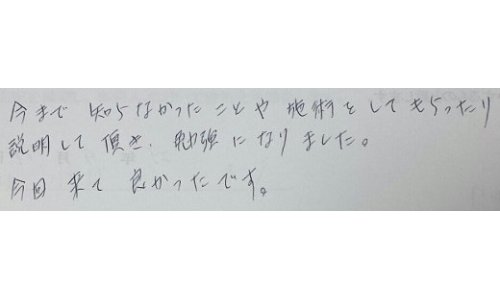 今まで知らなかったことや施術をしてもらったり
説明して頂き、勉強になりました。
今回来て良かったです。